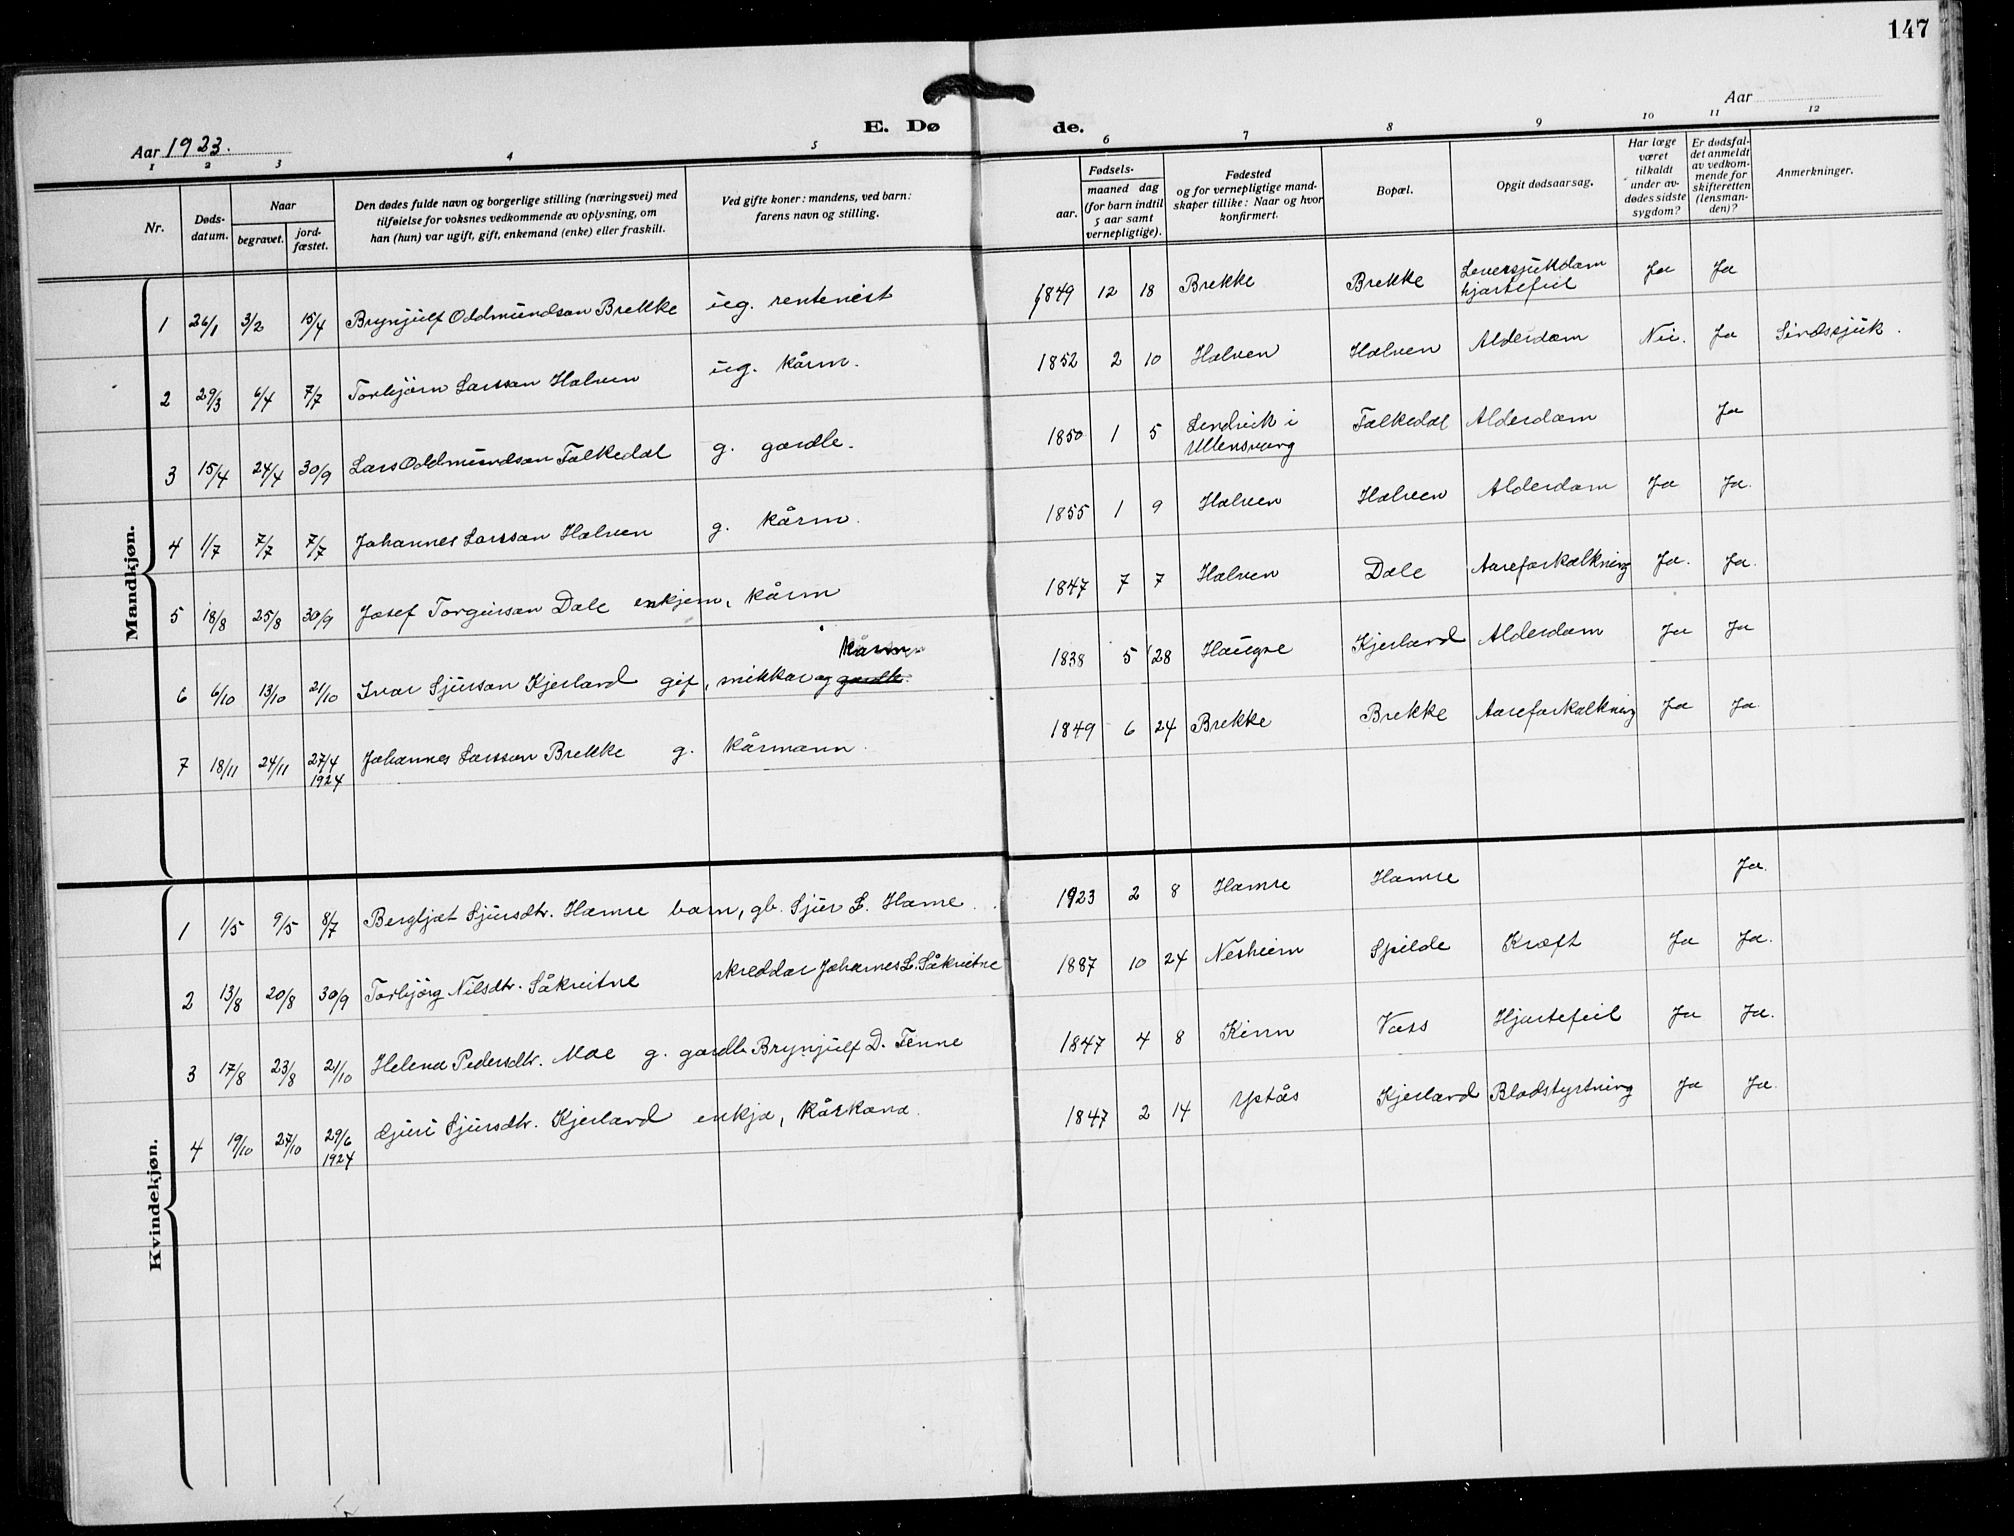 147
Aar 1923.
E. Døde.
Aar
1 2 3 4 5 6 7 8 9 10 11 12
Nr.
Døds-
datum.
Naar
begravet.
jord-
fæstet.
Den dødes fulde navn og borgerlige stilling (næringsvei) med
tilføielse for voksnes vedkommende av oplysning, om
han (hun) var ugift, gift, enkemand (enke) eller fraskilt.
Ved gifte koner: mandens, ved barn:
farens navn og stilling.
Fødsels-
aar.
maaned dag
(for barn indtil
5 aar samt
vernepligtige).
Fødested
og for vernepligtige mand-
skaper tillike: Naar og hvor
konfirmert.
Bopæl.
Opgit dødsaarsag.
Har læge
været
tilkaldt
under av-
dødes sidste
sygdom?
Er dødsfal-
det anmeldt
av vedkom-
mende for
skifteretten
(lensman-
den)?
Anmerkninger.
Mandkjøn.
1 26/1 3/2 15/4 Brynjulf Oddmundson Brekke ug. rentenist 1849 12 18 Brekke Brekke Leversjukdom hjartefeil Ja Ja
2 29/3 6/4 7/7 Torbjörn Larsson Halven ug. kårm. 1852 2 10 Halven Halven Alderdom Nei. Ja Sindssjuk.
3 15/4 24/4 30/9 Lars Oddmundson Folkedal g. gardbr. 1850 1 5 Lendvik i Ullensvang Folkedal Alderdom Ja
4 1/7 7/7 7/7 Johannes Larsson Halven g. kårm. 1855 1 9 Halven Halven Alderdom Ja Ja.
5 18/8 25/8 30/9 Josef Torgeirson Dale enkjem, kårm 1847 7 7 Halven Dale Aareforkalkning Ja. Ja.
6 6/10 13/10 21/10 Ivar Sjurson Kjerland gif, snikkar og gardbr. kårmann 1838 5 28 Haugse Kjerland Alderdom Ja Ja
7 18/11 24/11 27/4 1924 Johannes Larsson Brekke g. kårmann. 1849 6 24 Brekke Brekke Aareforkalkning Ja Ja
Kvindekjøn.
1 1/5 9/5 8/7 Bergljot Sjursdtr. Hamre barn, gb. Sjur L. Hamre. 1923 2 8 Hamre Hamre Ja.
2 13/8 20/8 30/9 Torbjörg Nilsdtr. Såkvitne skreddar Johannes L. Såkvitne 1887 10 24 Nesheim Spilde Kræft Ja Ja.
3 17/8 23/8 21/10 Helena Pedersdtr. Moe g. gardb. Brynjulf D. Tenne 1847 4 8 Kinn Voss Hjartefeil Ja Ja.
4 19/10 27/10 29/6 1924 Guri Sjursdtr. Kjerland enkja, kårkona. 1847 2 14 Ystås Kjerland Blodstyrtning Ja Ja.